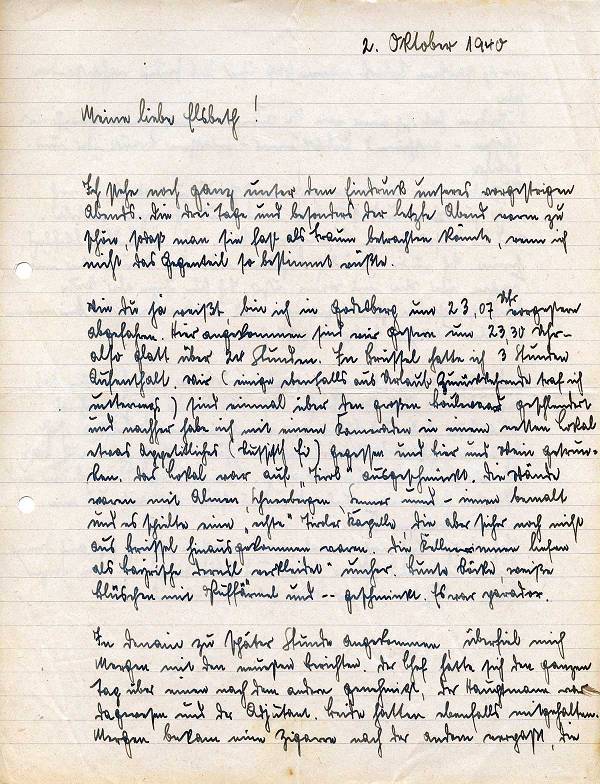 2. Oktober 1940
Meine liebe Elsbeth!
Ich stehe noch ganz unter dem Eindruck unseres vorgestrigen
Abends. Die drei Tage und besonders der letzte Abend waren zu
schön, sodaß man sie fast als Traum betrachten könnte, wenn ich
nicht das Gegenteil so bestimmt wüßte.
Wie Du ja weißt, bin ich in Godesberg um 23,07 Uhr vorgestern
abgefahren. Hier angekommen sind wir gestern um 23,30 Uhr -
also glatt über 24 Stunden. In Brüssel hatte ich 3 Stunden
Aufenthalt. Wir (einige ebenfalls aus Urlaub Zurückkehrende traf ich
unterwegs) sind einmal über den großen Boulevard geschlendert
und nachher habe ich mit einem Kameraden in einem netten Lokal
etwas Appetitliches (Russisch Ei) gegessen und Bier und Wein getrun-
ken. Das Lokal war auf "Tirol" ausgeschmückt. Die Wände
waren mit Almen, Schneebergen, Senner und - innen bemalt
und es spielte eine "echte" Tiroler Kapelle, die aber sicher noch nicht
aus Brüssel hinausgekommen waren. Die Kellnerinnen liefen
als bayrische Deandl verkleidet umher. Bunte Röcke, weiße
Blüschen mit Puffärmel und -- geschminkt. Es war paradox.
In Denain zu später Stunde angekommen, überfiel mich
Mergen mit den neuesten Berichten. Der Chef hatte sich den ganzen
Tag über einen nach dem andern genehmigt, der Hauptmann war
dagewesen und der Adjutant. Beide hatten ebenfalls mitgehalten.
Mergen bekam eine Zigarre nach der andern verpaßt, die